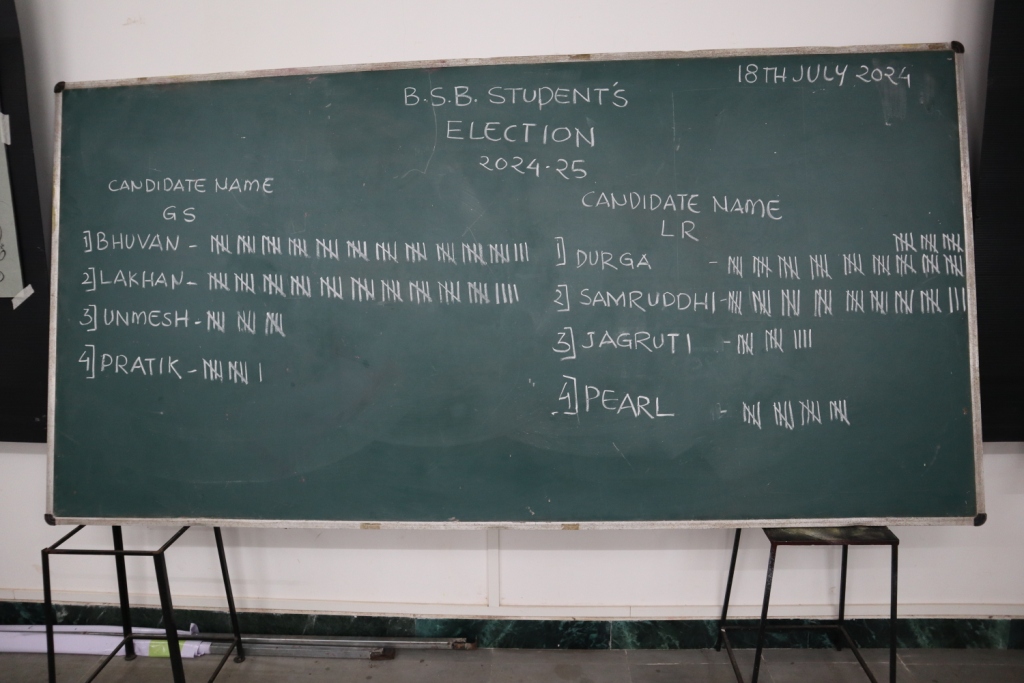 18TH JULY 2024
B.S.B. STUDENT'S
ELECTION
2024-25
CANDIDATE NAME
GS
1] BHUVAN -
2] LAKHAN -
3] UNMESH -
4] PRATIK -
CANDIDATE NAME
LR
1] DURGA -
2] SAMRUDDHI -
3] JAGRUTI -
4] PEARL -